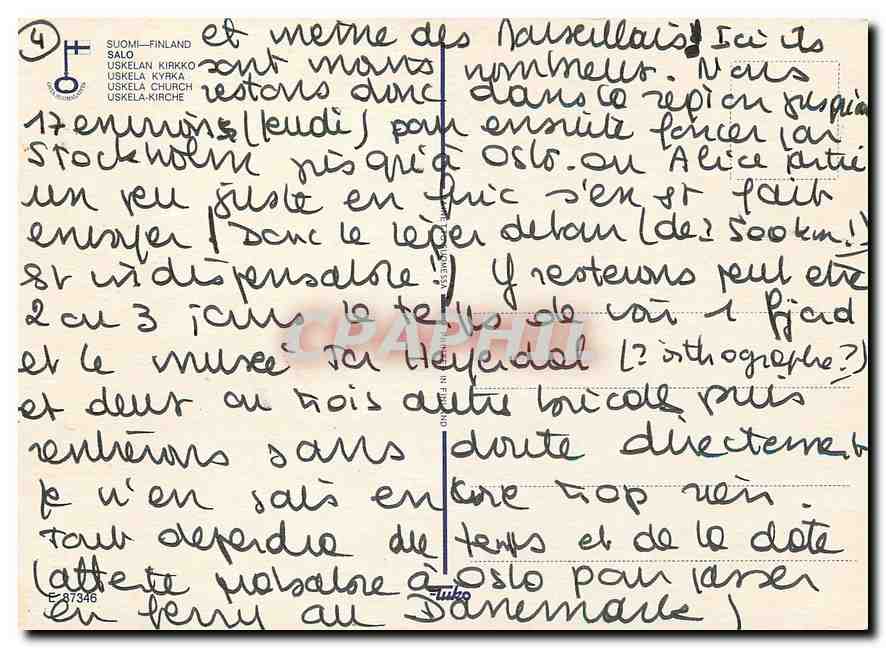 4
SUOMI—FINLAND
SALO
USKELAN KIRKKO
USKELA KYRKA
USKELA CHURCH
USKELA-KIRCHE
et même des Marseillais! Ici ils
sont moins nombreux. Nous
restons donc dans la région jusqu'au
17 environs (jeudi) pour ensuite foncer par
Stockholm jusqu'à Oslo. où Alice partie
un peu juste en fric s'en est fait
envoyer! Donc le léger détour (de? 500 km!)
est indispensable!) Y resterons peut être
2 ou 3 jours le temps de voir 1 fjord
et le musée Tor Heyerdal (? orthographe?)
et deux ou trois autres bricoles puis
rentrerons sans doute directement
je n'en sais encore trop rien.
Tout dépendra du temps et de la date
(attente probable à Oslo pour passer
en ferry au Danemark)
PRINTED IN FINLAND
E 87346
CPAPHIL